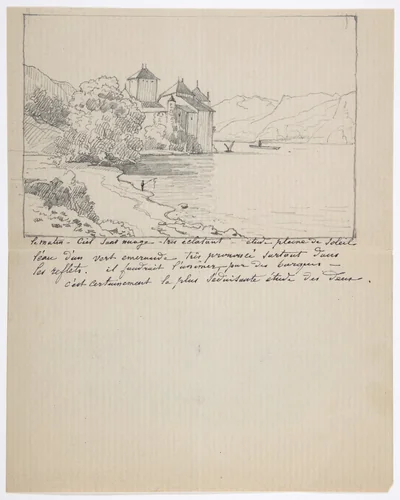 Le matin - Ciel sans nuage - très éclatant étude pleine de Soleil
l'eau d'un vert emeraude très prononcé surtout dans
les reflets. il faudrait l'animer par des barques -
c'est certainement la plus séduisante étude des Deux.